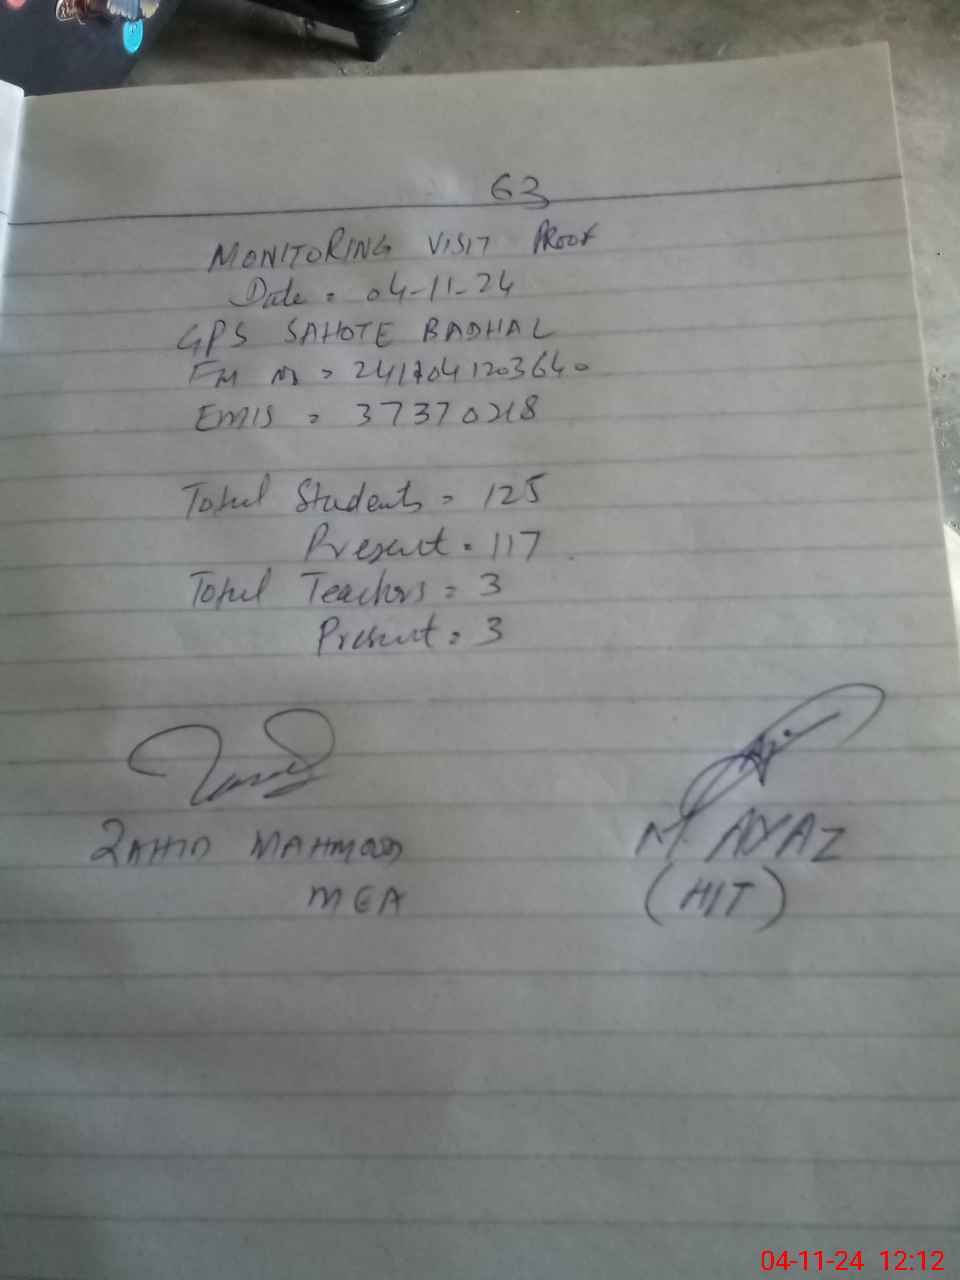 63
MONITORING VISIT PROOF
Date = 04-11-24
GPS SAHOTE BADHAL
= 2417041203640
EMIS = 37370218
Total Students = 125
Present = 117
Total Teachers = 3
Present = 3
ZAHID MAHMOOD
M. AYAZ
MEA
(HIT)
04-11-24 12:12